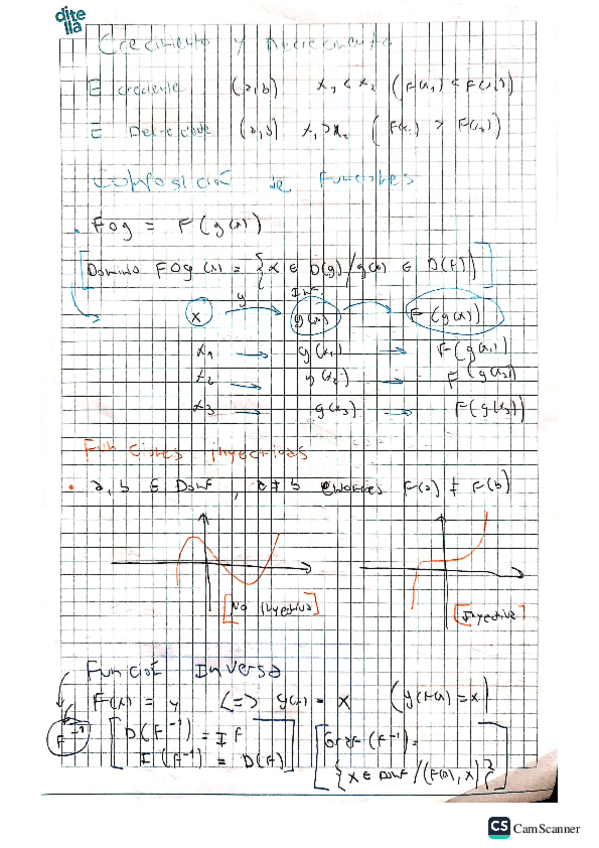 di te lla
Crecimiento y Decrecimiento
E creciente (a,b) x₁ < x₂ (F(x₁) < F(x₂))
E Decreciente (a,b) x₁ > x₂ (F(x₁) > F(x₂))
Composición de Funciones
• Fog = F(g(x))
[Dominio Fog (x) = {x ∈ D(g) / g(x) ∈ D(f)}]
g
x g(x) F(g(x))
x₁ → g(x₁) → F(g(x₁))
x₂ → g(x₂) → F(g(x₂))
x₃ → g(x₃) → F(g(x₃))
Funciones inyectivas
• a, b ∈ Domf, a ≠ b entonces F(a) ≠ F(b)
[No inyectiva] [Inyectiva]
Función Inversa
F(x) = y <=> g(y) = x (g(F(x)) = x)
F⁻¹ [D(F⁻¹) = If
I(F⁻¹) = D(f)]
[Graf(F⁻¹) =
{x ∈ Domf / (F(x), x)}]
CS CamScanner